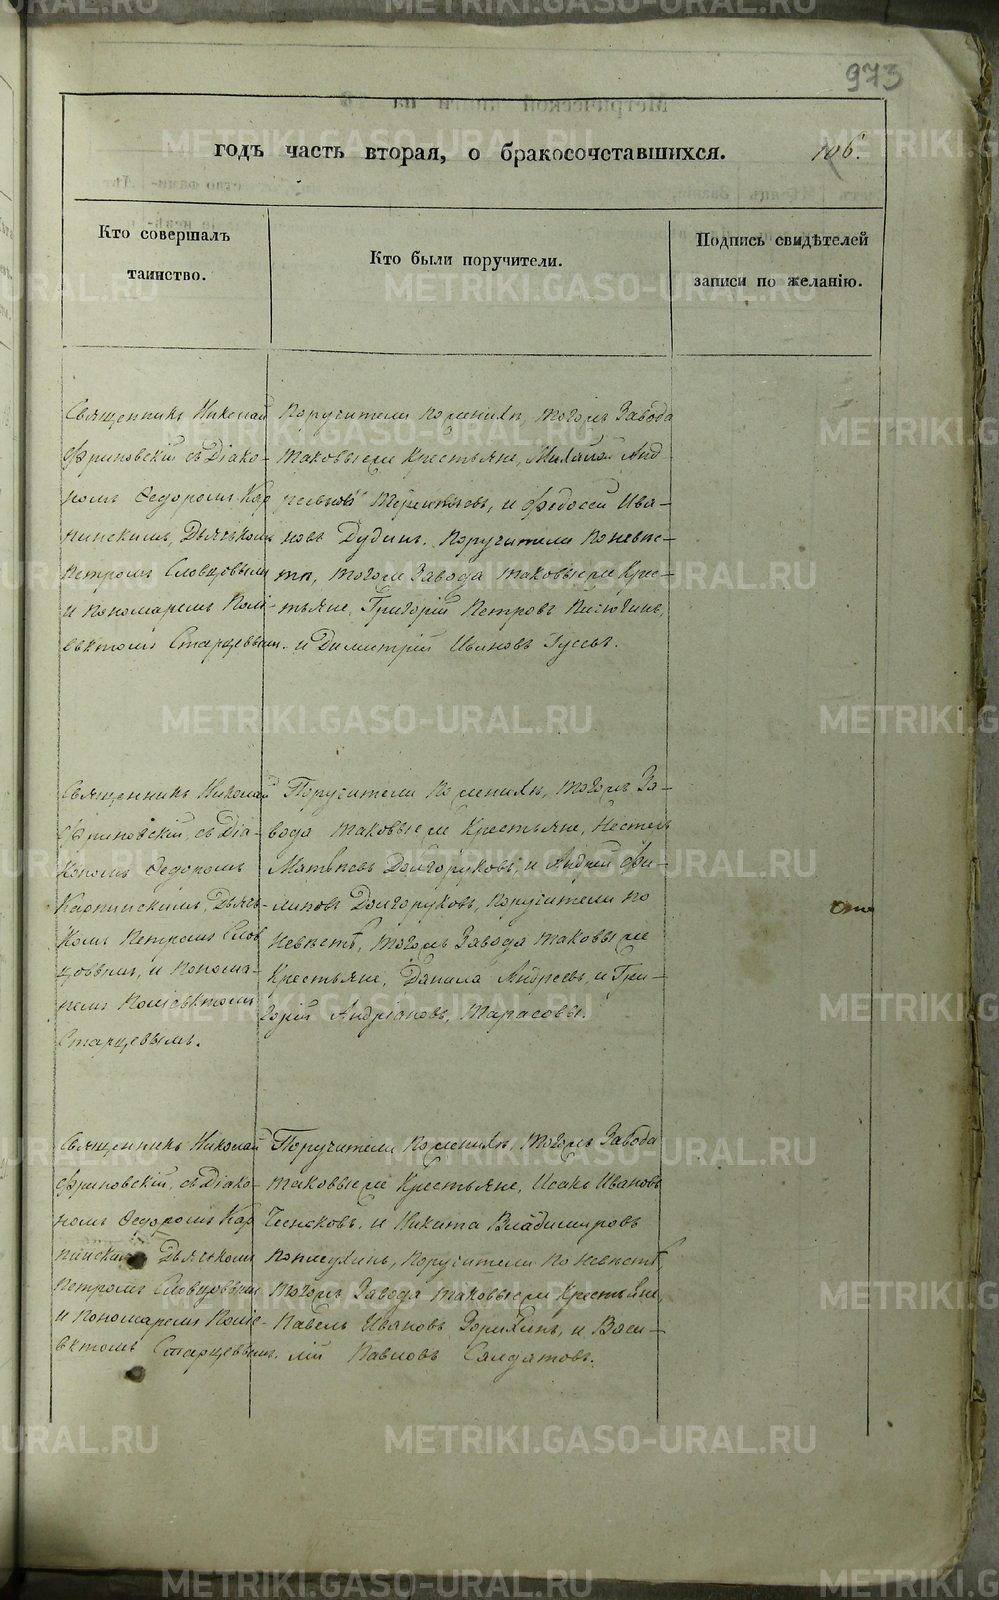 973
годъ часть вторая, о бракосочетавшихся.
106.
Кто совершалъ
таинство.
Кто были поручители.
Подпись свидѣтелей
записи по желанію.
Священникъ Николай
Фриновскій съ Діако-
номъ Федоромъ Кар
пинскимъ, Дьячькомъ
Петромъ Словцовымъ
и Пономаремъ Полі-
евктомъ Старцевымъ.
Поручители по женихѣ, тогожъ Завода
таковыеже Крестьяне, Михайло Анд
реевъ и Федосей Ива-
новъ Дудинъ. Поручители по невѣс-
тѣ, тогоже Завода таковыеже Крес-
тьяне, Григорій Петровъ
и Димитрій Ивановъ Гусевъ.
Священникъ Николай
Фриновскій, съ Діа-
кономъ Федоромъ
Карпинскимъ, Дьячь-
комъ Петромъ Слов
цовымъ, и Понома-
ремъ Поліевктомъ
Старцевымъ.
Поручители по женихѣ, тогожъ За-
вода таковыеже Крестьяне, Нестеръ
Матвѣевъ Долгоруковъ, и Андрей Фи-
липовъ Долгоруковъ, поручители по
невѣстѣ, тогожъ Завода таковыеже
Крестьяне, Данила Андреевъ, и Гри-
горій Андріановъ, Тарасовы.
Священникъ Николай
Фриновскій, съ Діако-
номъ Федоромъ Кар
пинскимъ Дьячкомъ
Петромъ Словцовымъ
и Пономаремъ Поліе-
вктомъ Старцевымъ.
Поручители по женихѣ, тогожъ Завода
таковыеже Крестьяне, Исакъ Ивановъ
Чесноковъ, и Никита Владимировъ
поручители по невѣстѣ
тогожъ Завода таковыеже Крестьяне,
Павелъ Ивановъ и Васи-
лій Павловъ Салдатовъ.
METRIKI.GASO-URAL.RU